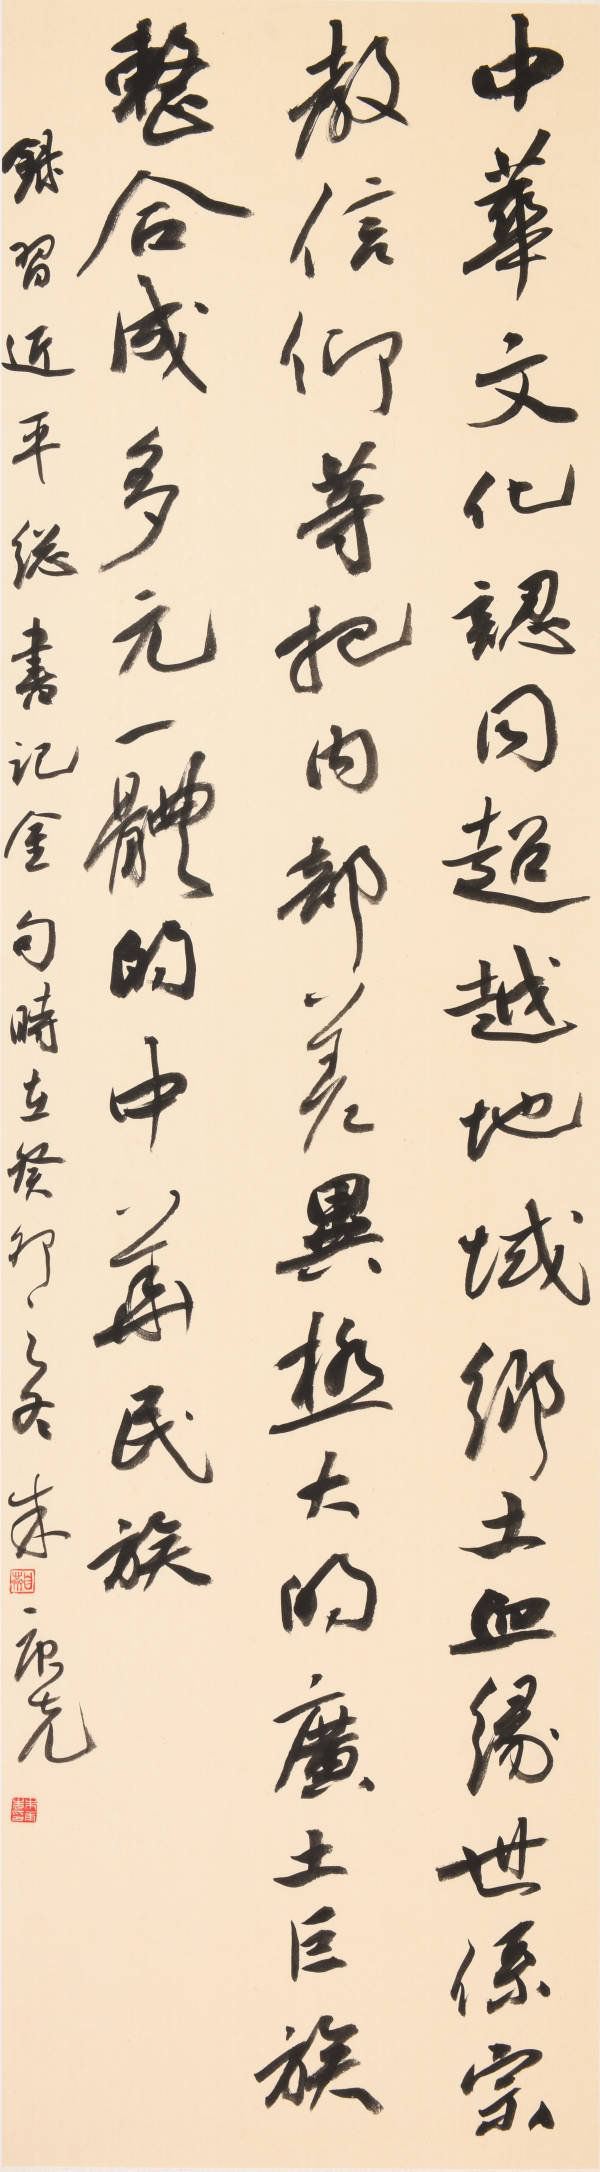 中華文化認同超越地域鄉土血緣世係宗
教信仰等把内部差異極大的廣土巨族
整合成多元一體的中華民族
錄習近平總書記金句時在癸卯之冬朱